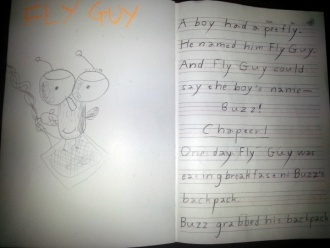 FLY GUY
A boy had a pet fly.
He named him Fly Guy.
And Fly Guy could
say the boy's name-
Buzz!
Chapter 1
One day Fly Guy was
eating breakfast ni Buzz's
backpack.
Buzz grabbed his backpack